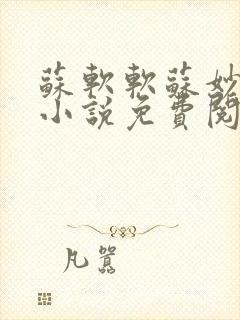 蘇軟軟蘇妙
小說免費閱
凡囂